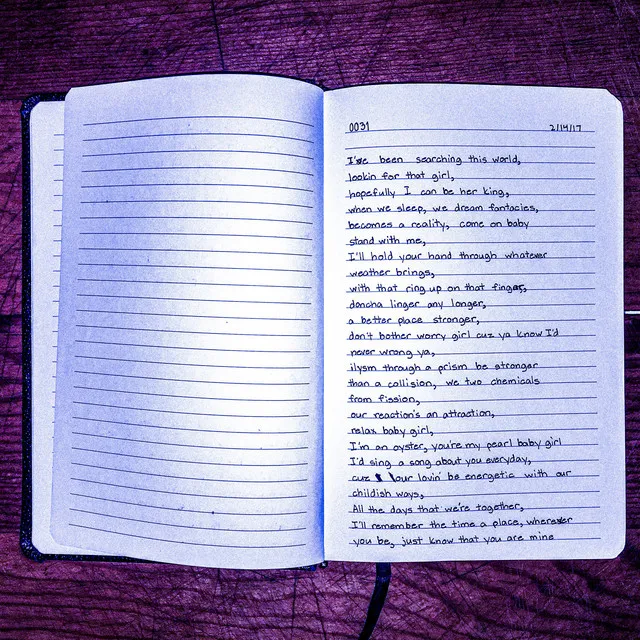 0031 2/14/17
I've been searching this world,
lookin for that girl,
hopefully I can be her king,
when we sleep, we dream fantacies,
becomes a reality, come on baby
stand with me,
I'll hold your hand through whatever
weather brings,
with that ring up on that finger,
doncha linger any longer,
a better place stronger,
don't bother worry girl cuz ya know I'd
never wrong ya,
ilysm through a prism be stronger
than a collision, we two chemicals
from fission,
our reaction's an attraction,
relax baby girl,
I'm an oyster, you're my pearl baby girl
I'd sing a song about you everyday,
cuz our lovin' be energetic with our
childish ways,
All the days that we're together,
I'll remember the time a place, wherever
you be, just know that you are mine